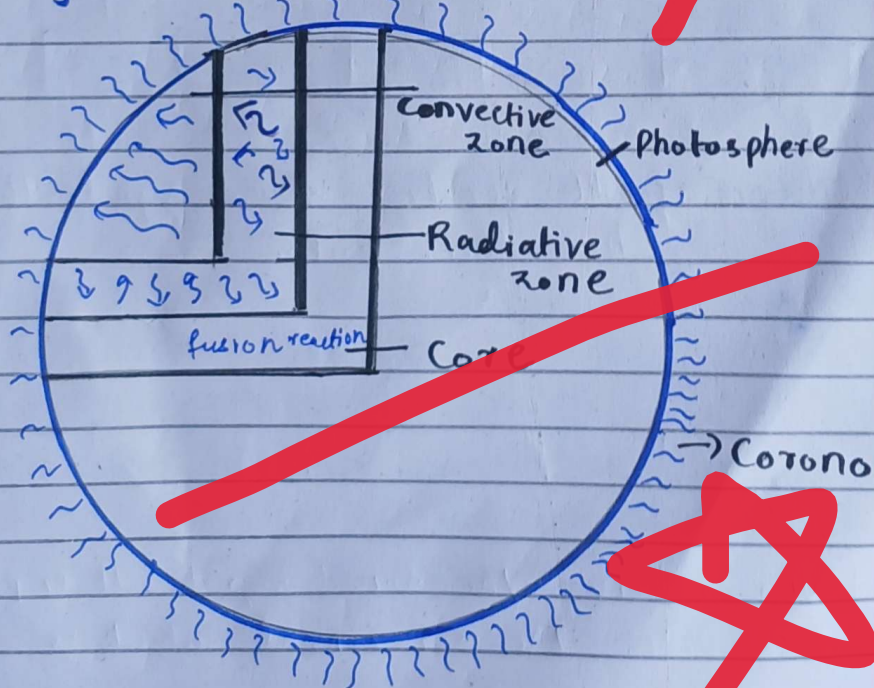 Convective
zone
Photosphere
Radiative
zone
fusion reaction
Core
Corono